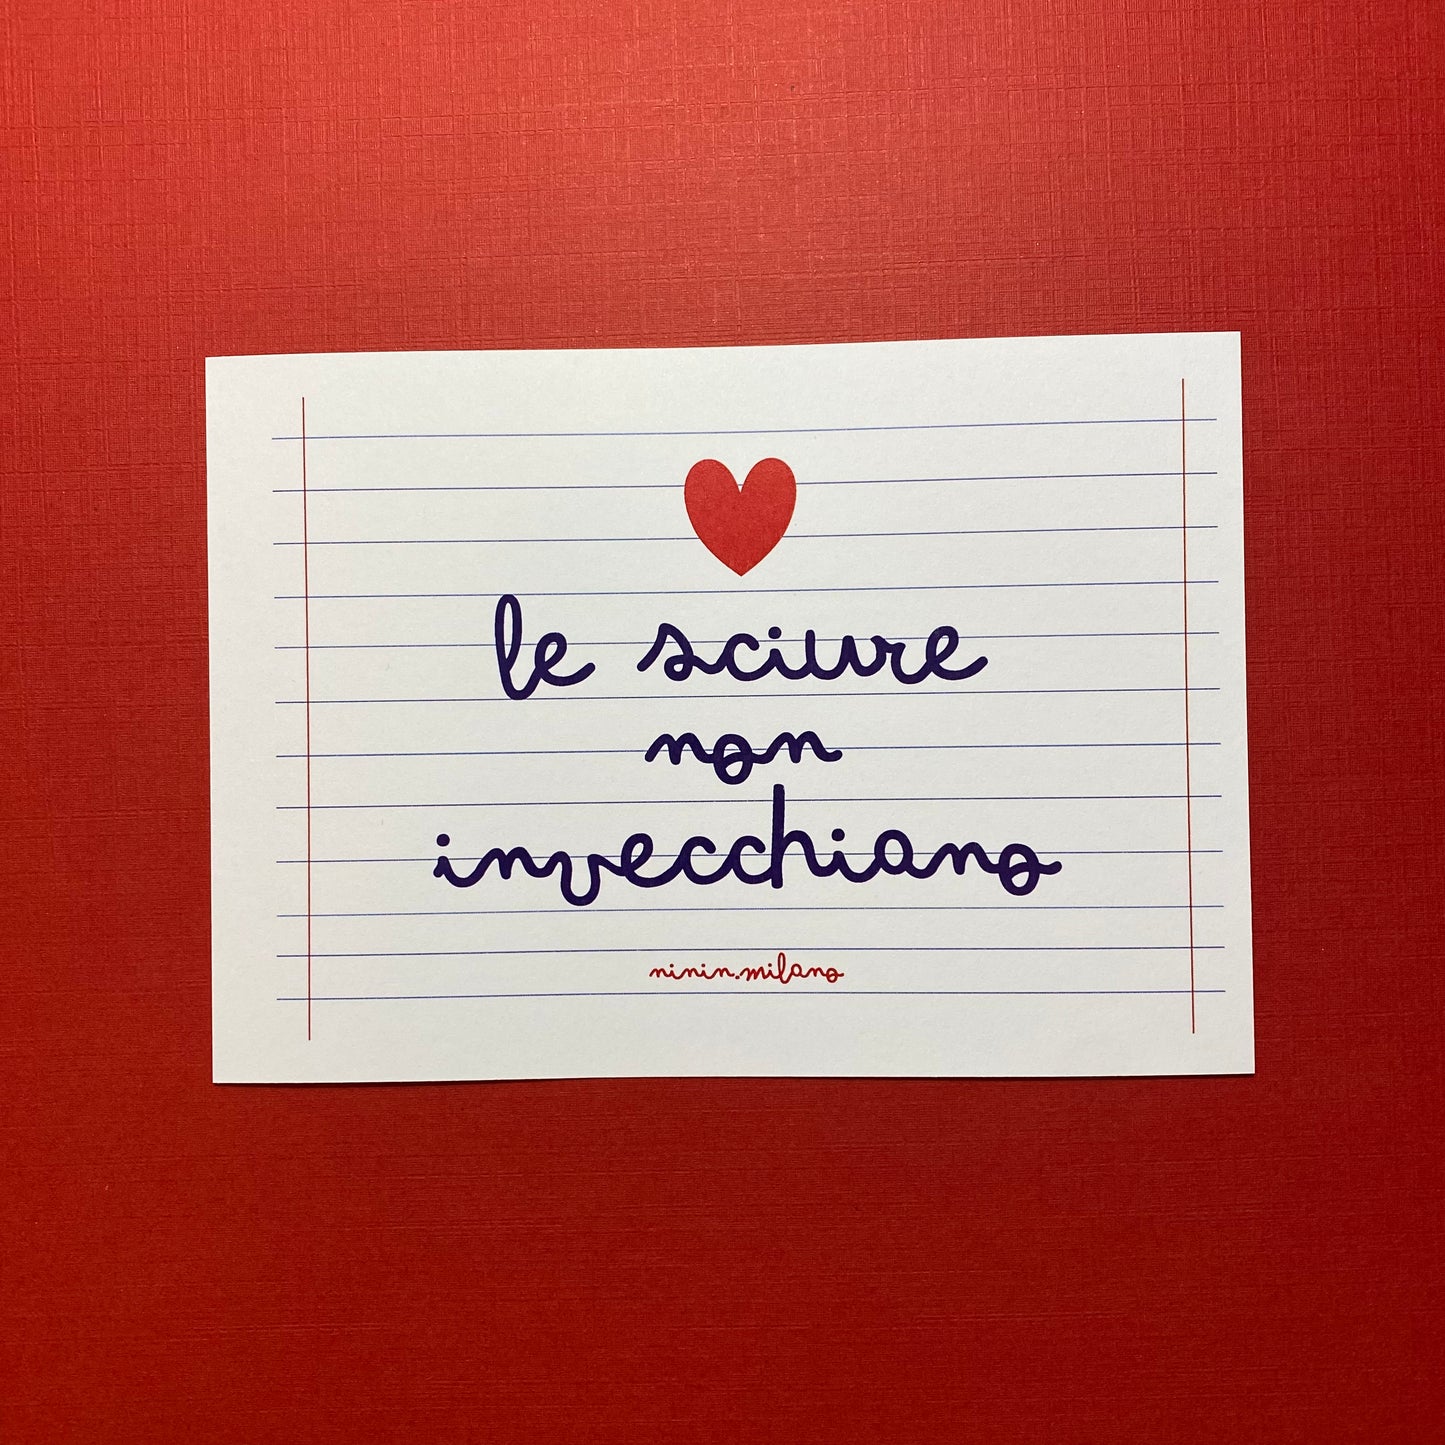 le sciure
non
invecchiano
ninin.milano